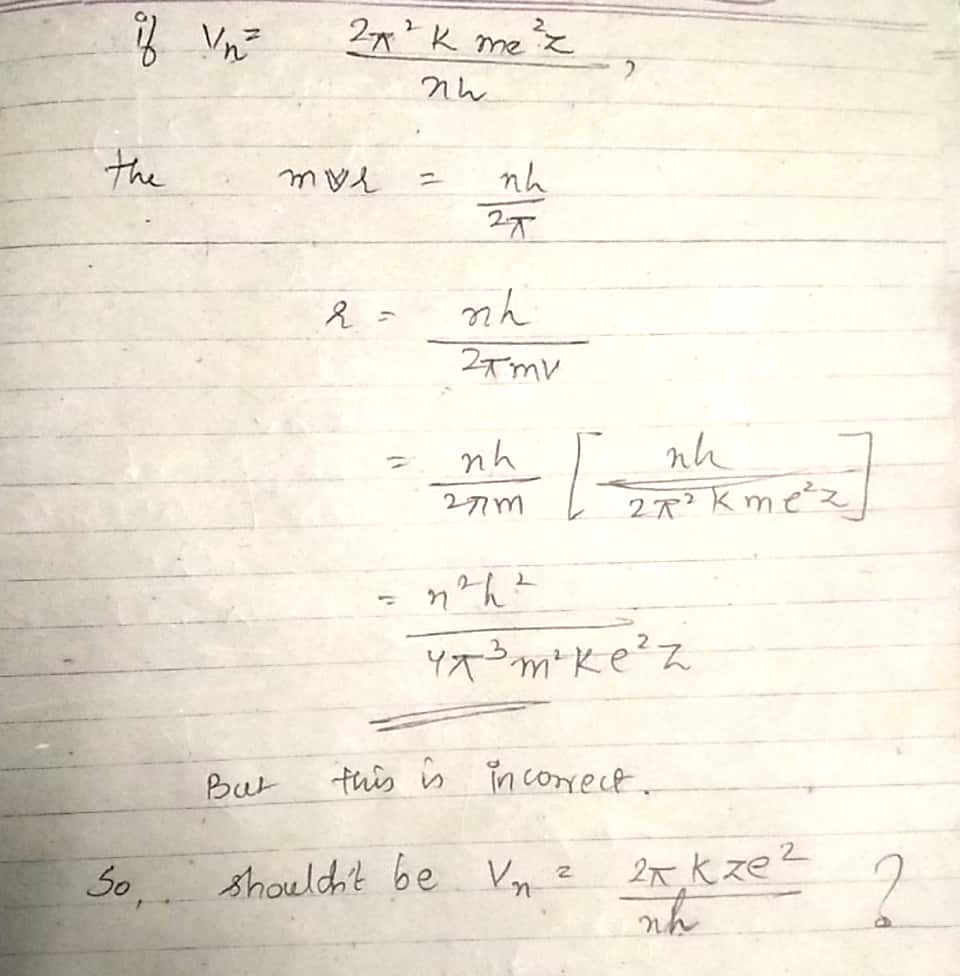 if Vn = 2π² K me²z / nh ,
the mvr = nh / 2π
r = nh / 2πmv
= nh / 2πm [ nh / 2π² K me²z ]
= n²h² / 4π³m²Ke²Z
But this is incorrect.
So, shouldn't be Vn = 2π K ze² / nh ?